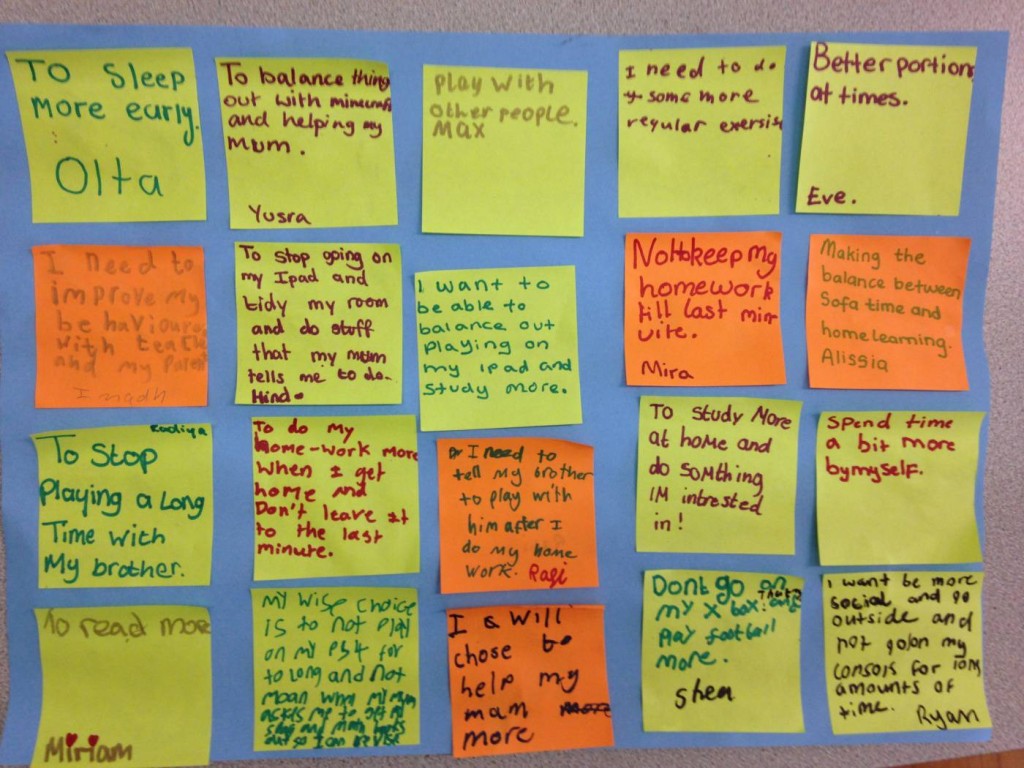 To Sleep
more early.
Olta
To balance thing
out with minecraft
and helping my
Mum.
Yusra
play with
other people.
Max
I need to do
some more
regular exersise
Better portions
at times.
Eve.
I need to
improve my
behaviour
with teach
and my Parent
To stop going on
my Ipad and
tidy my room
and do stuff
that my mum
tells me to do.
Hind.
I want to
be able to
balance out
playing on
my ipad and
study more.
Not to keep my
homework
till last min
uite.
Mira
Making the
balance between
Sofa time and
home learning.
Alissia
Radiya
To Stop
Playing a Long
Time with
My brother.
To do my
home-work more
when I get
home and
Don't leave it
to the last
minute.
I need to
tell my brother
to play with
him after I
do my home
work. Ragi
To study More
at home and
do somthing
IM intrested
in!
spend time
a bit more
bymyself.
To read more
Miriam
My wise choice
is to not play
on my PS4 for
to long and not
moan when my mum
asks me to get off
so I can revise
I will
chose to
help my
mam more
more
Dont go on
my x box and
Play football
more.
Shea
I want be more
social and go
outside and
not go on my
consols for long
amounts of
time.
Ryan